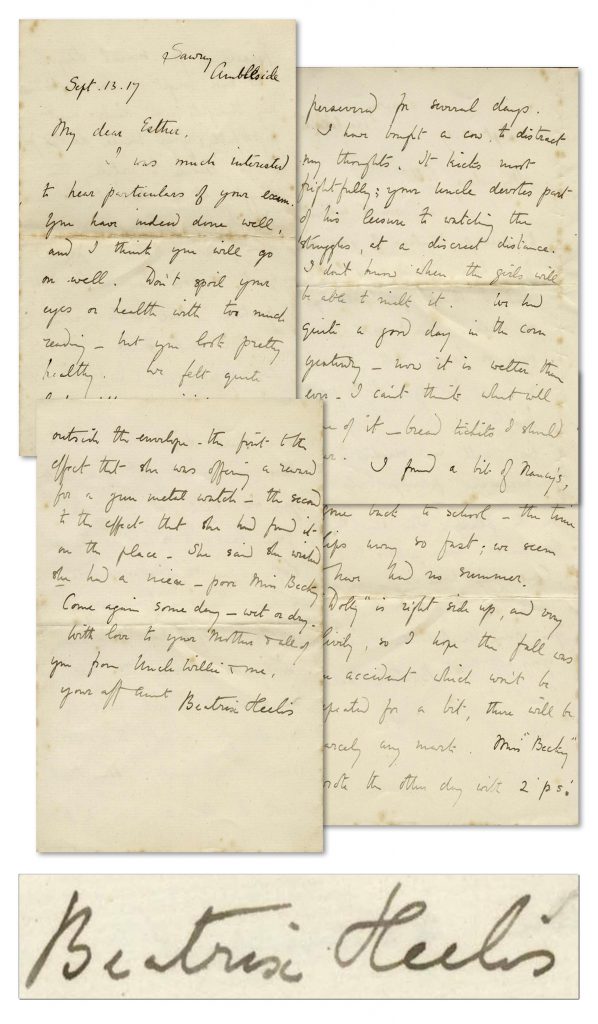 Sawrey
Ambleside
Sept. 13. 17
My dear Esther,
I was much interested
to hear particulars of your exam.
You have indeed done well,
and I think you will go
on well. Don't spoil your
eyes or health with too much
reading – but you look pretty
healthy. We felt quite
persevered for several days.
I have bought a cow to distract
my thoughts. It kicks most
frightfully; your uncle devotes part
of his leisure to watching the
struggles, at a discreet distance.
I don't know when the girls will
be able to milk it. We had
quite a good day in the corn
yesterday – now it is wetter than
ever. I can't think what will
of it – bread tickets I should
I found a bit of Nancy's,
back to school – the time
slips away so fast; we seem
have had no summer.
"Dolly" is right side up, and very
lively, so I hope the fall was
accident which won't be
repeated for a bit, there will be
scarcely any mark. Miss "Becky"
wrote the other day with 2 p.s.
outside the envelope – the first to the
effect that she was offering a reward
for a gun metal watch – the second
to the effect that she had found it
on the place – She said she wished
she had a niece – poor Miss Becky
Come again some day – wet or dry –
With love to your Mother & all of
you from Uncle Willie & me,
your aff aunt Beatrix Heelis
Beatrix Heelis